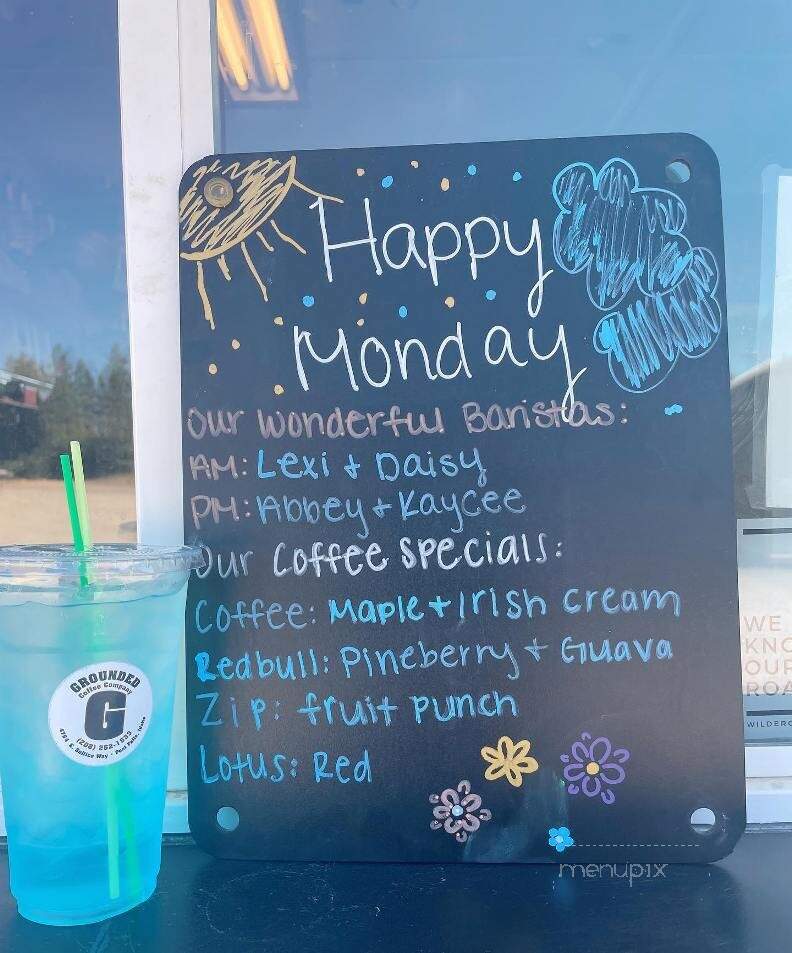 Happy
Monday
Our Wonderful Baristas:
AM: Lexi + Daisy
PM: Abbey + Kaycee
Our Coffee Specials:
Coffee: Maple + Irish Cream
Redbull: Pineberry + Guava
Zip: fruit punch
Lotus: Red
GROUNDED
Coffee Company
G
(208) 262-1633
4751 E. Seltice Way • Post Falls, Idaho
WE
KNO
OUR
ROA
WILDERC
menupix